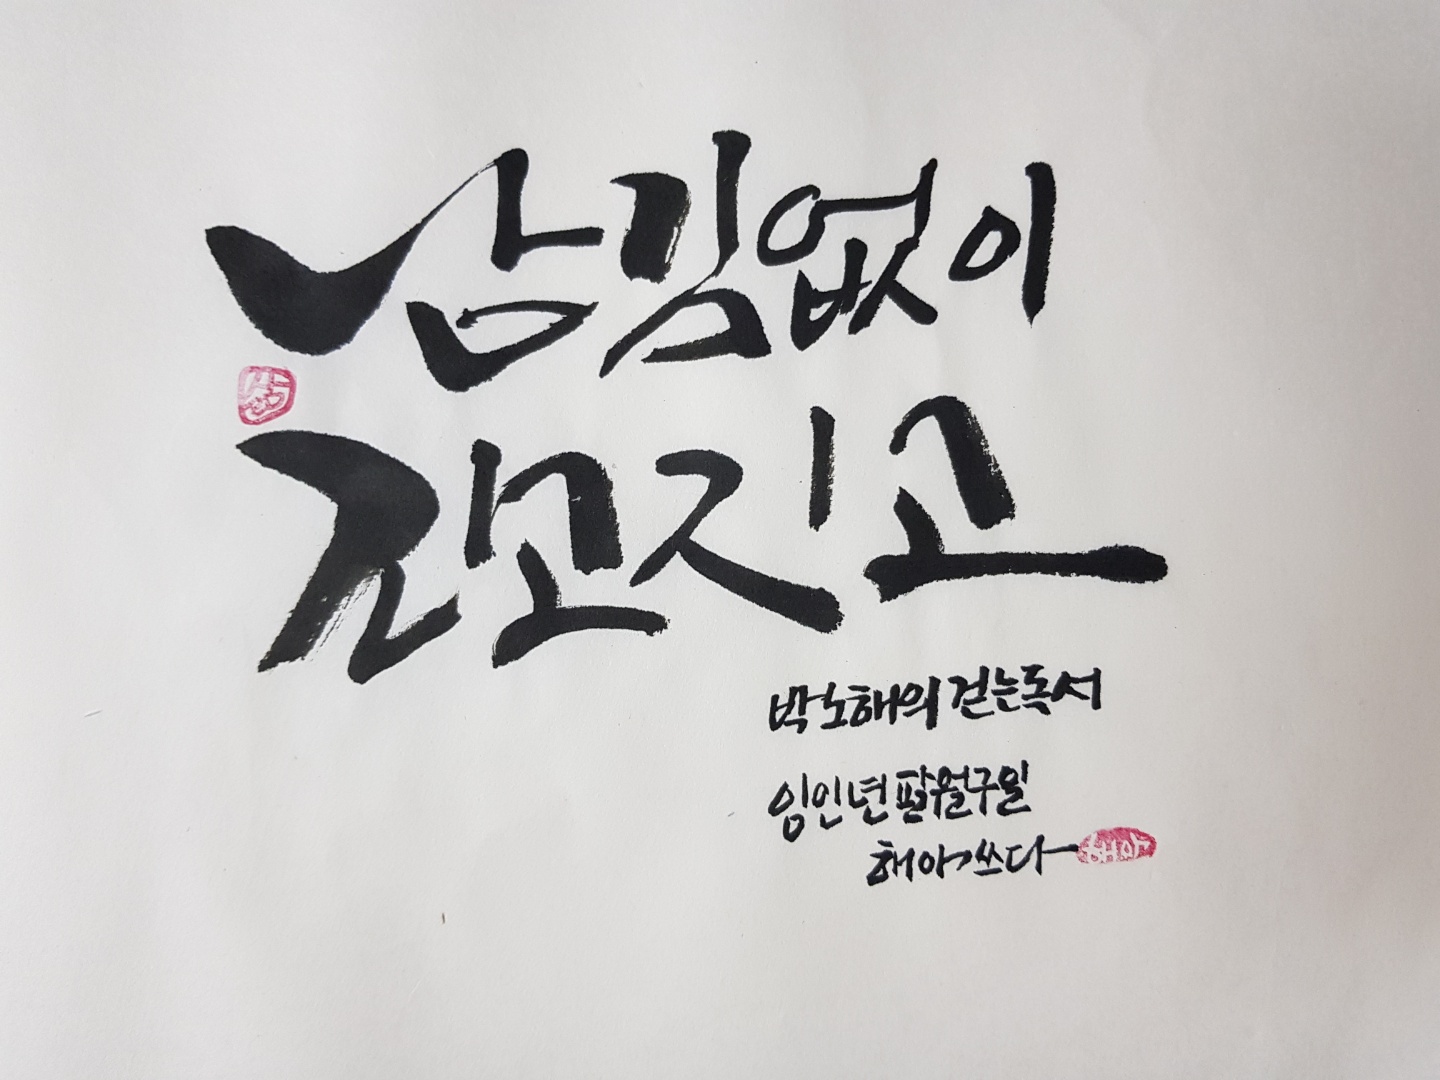 남김없이
피고지고
박노해의 걷는독서
임인년 팔월구일
해아쓰다 해아